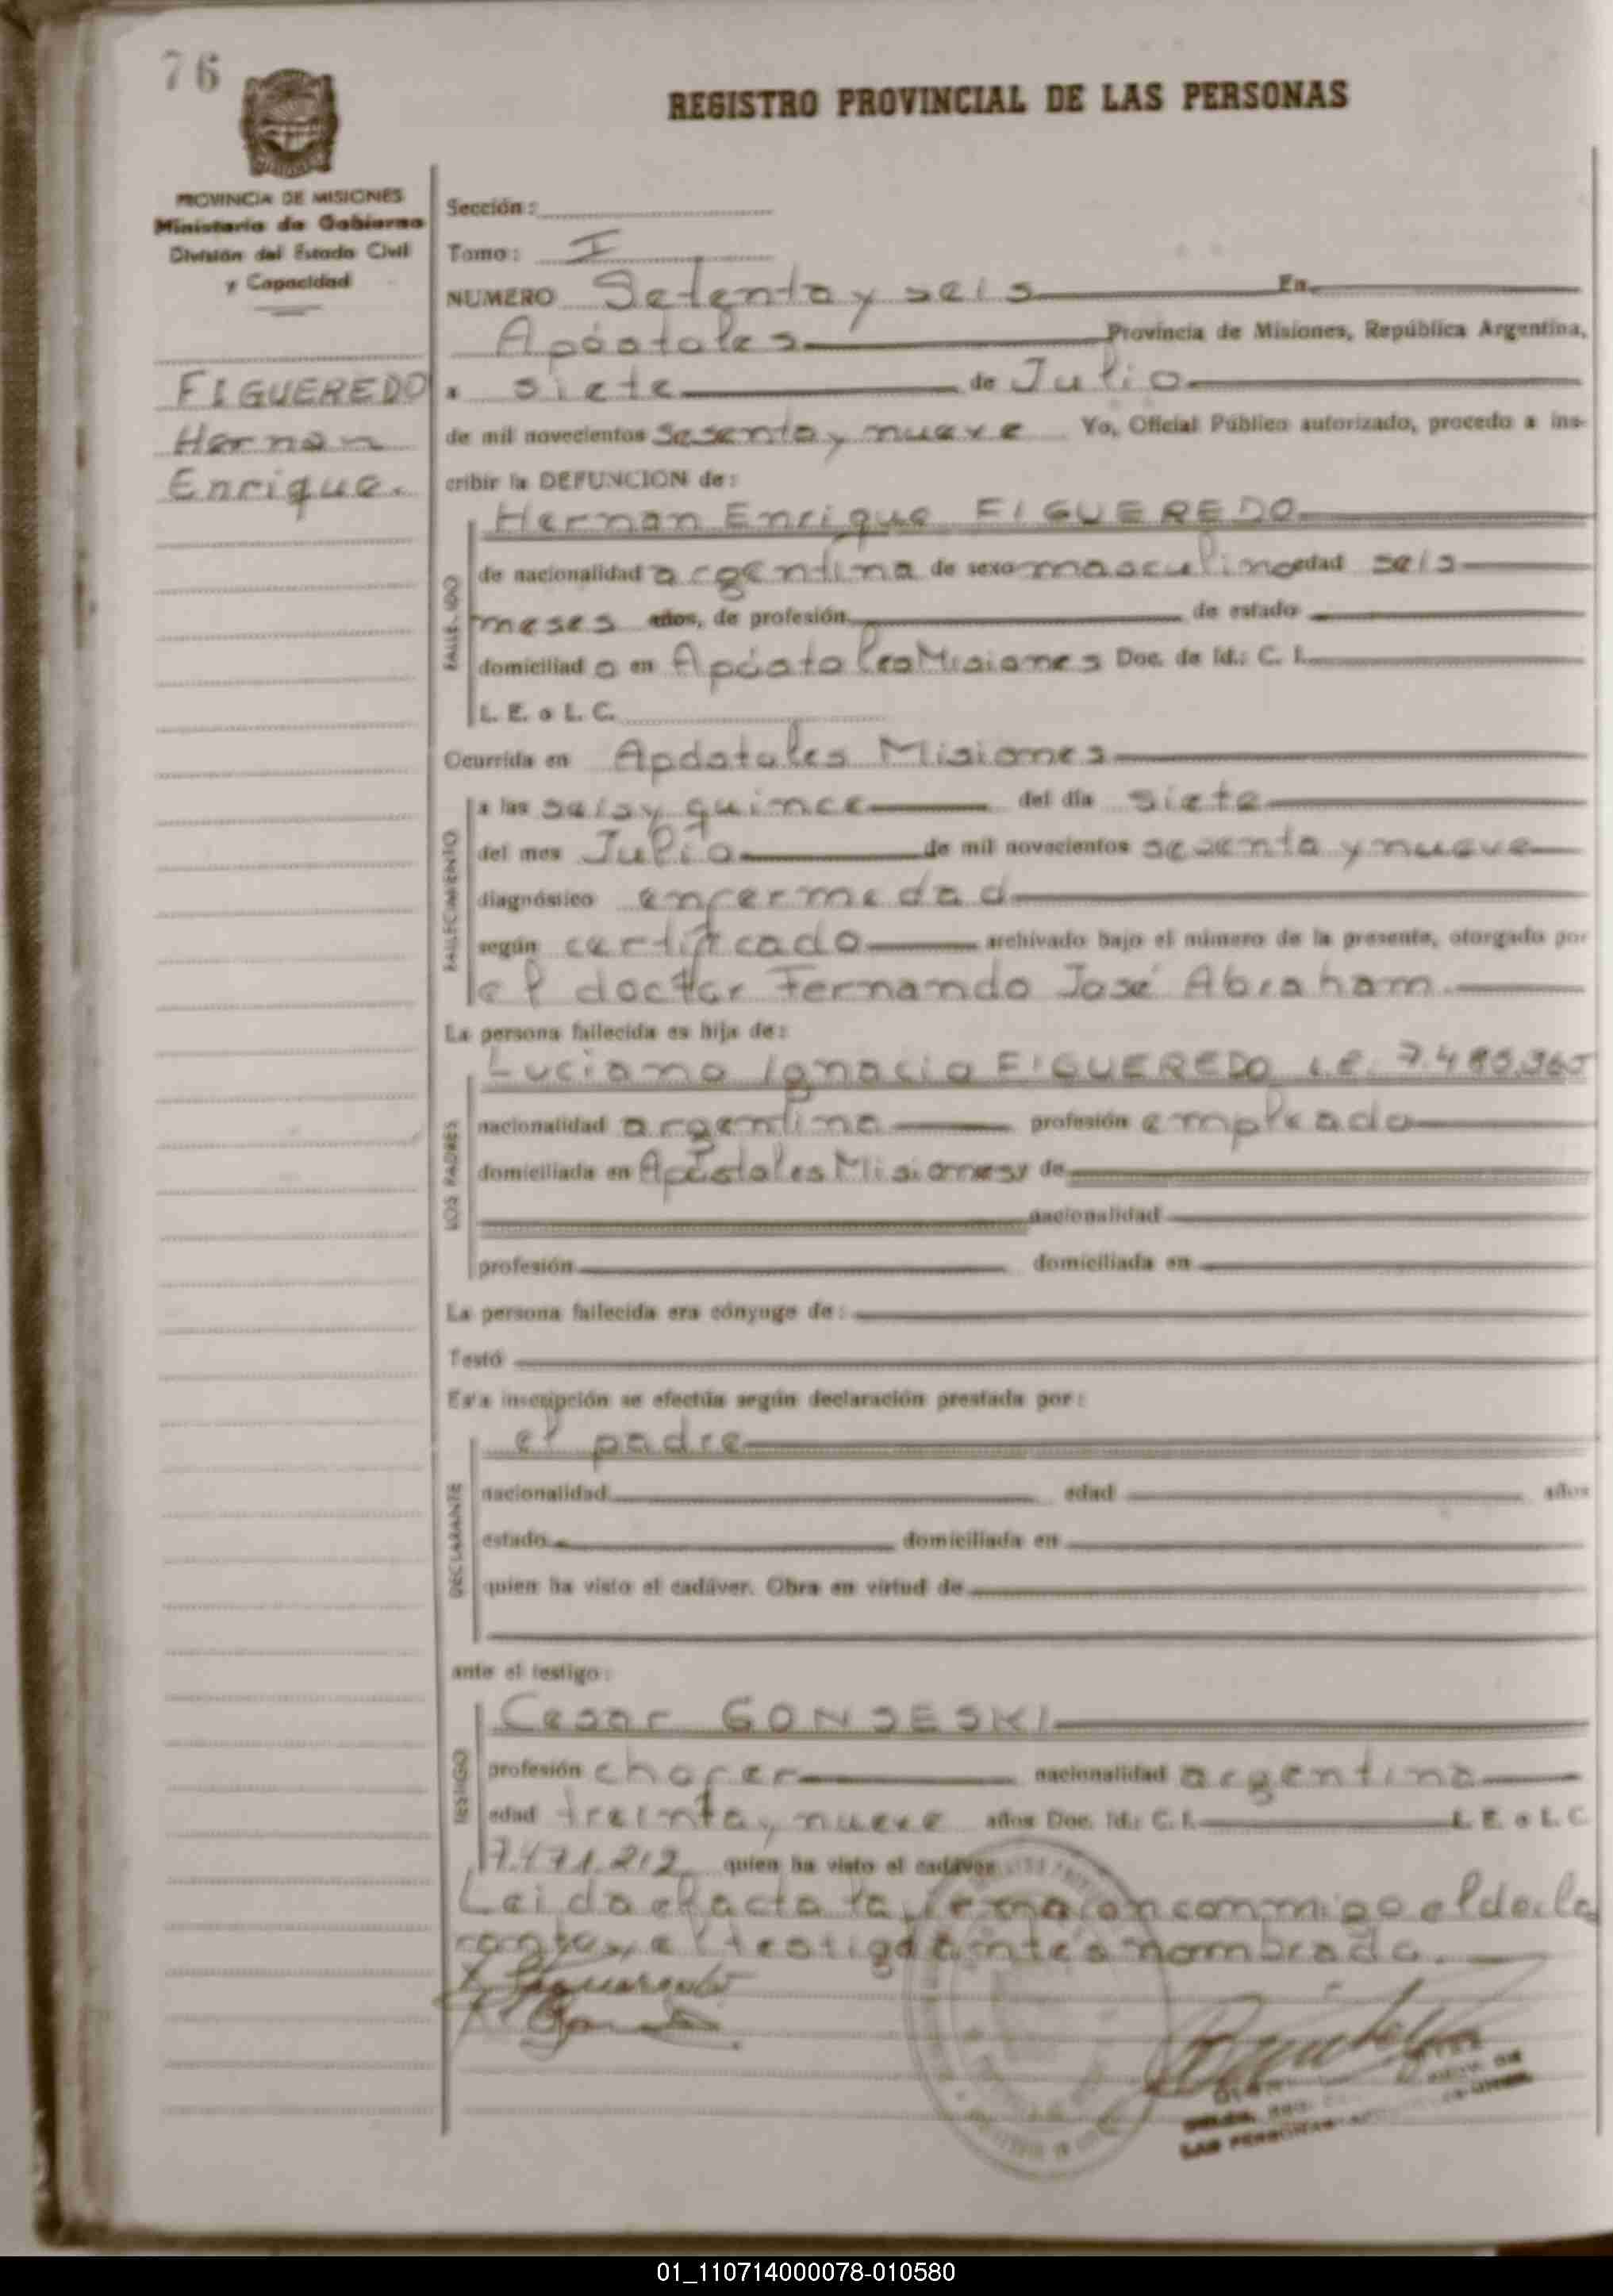 76
REGISTRO PROVINCIAL DE LAS PERSONAS
PROVINCIA DE MISIONES
Ministerio de Gobierno
División del Estado Civil
y Capacidad
FIGUEREDO
Hernan
Enrique.
Sección:
Tomo: I
NUMERO Setenta y seis En
Apóstoles Provincia de Misiones, República Argentina,
a siete de Julio
de mil novecientos sesenta y nueve Yo, Oficial Público autorizado, procedo a ins-
cribir la DEFUNCION de:
Hernan Enrique FIGUEREDO
FALLECIDO
de nacionalidad argentina de sexo masculino edad seis
meses años, de profesión de estado
domiciliado en Apóstoles Misiones Doc. de Id.: C. I.
L. E. o L. C.
Ocurrida en Apóstoles Misiones
FALLECIMIENTO
a las seis y quince del día siete
del mes Julio de mil novecientos sesenta y nueve
diagnóstico enfermedad
según certificado archivado bajo el número de la presente, otorgado por
el doctor Fernando José Abraham
La persona fallecida es hija de:
LOS PADRES
Luciano Ignacio FIGUEREDO L.E. 7.485.365
nacionalidad argentina profesión empleado
domiciliada en Apóstoles Misiones y de
nacionalidad
profesión domiciliada en
La persona fallecida era cónyuge de:
Testó
Esta inscripción se efectúa según declaración prestada por:
DECLARANTE
el padre
nacionalidad edad años
estado domiciliada en
quien ha visto el cadáver. Obra en virtud de
ante el testigo:
TESTIGO
Cesar GONSESKI
profesión chofer nacionalidad argentina
edad treinta y nueve años Doc. Id.: C. I. L. E. o L. C.
7.471.212 quien ha visto el cadáver
Leida el acta la firmaron conmigo el decla
rante y el testigo antes nombrado.
LAS PERSONAS
01_110714000078-010580